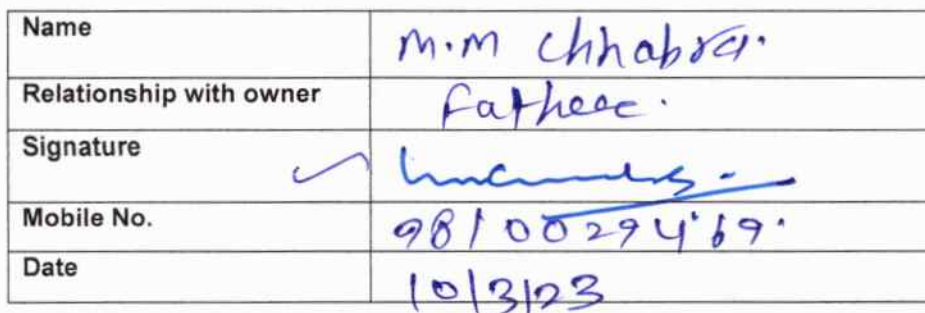 Name M.M Chhabra.
Relationship with owner Father.
Signature
Mobile No. 9810029469.
Date 10/3/23